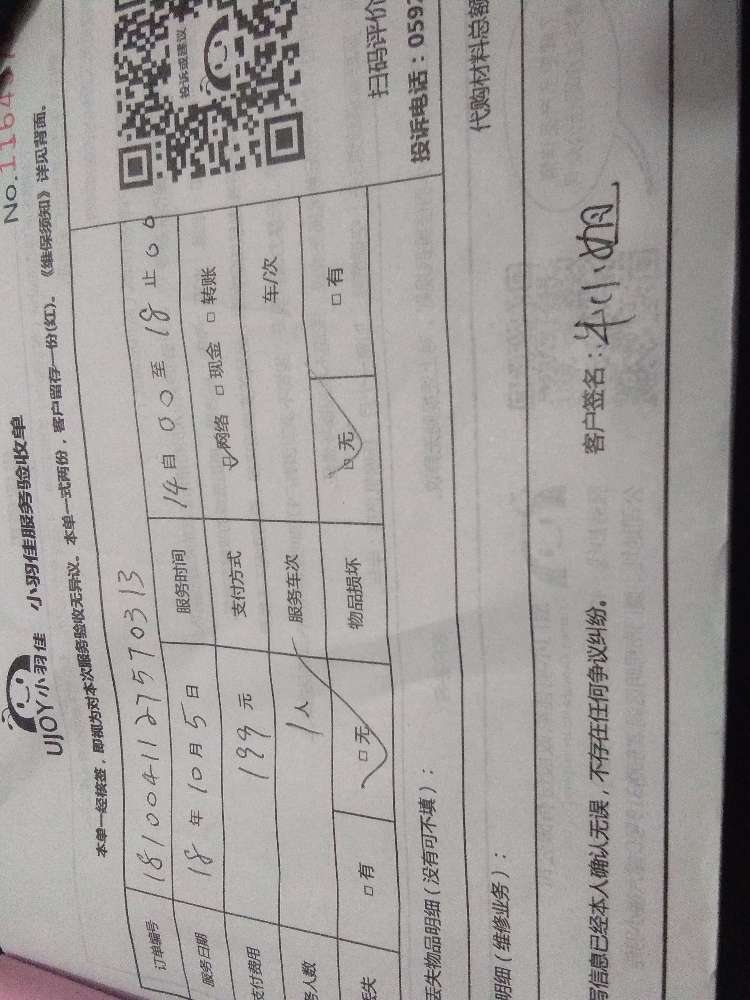 No.1164
UJOY小羽佳 小羽佳服务验收单
本单一经核签，即视为对本次服务验收无异议。本单一式两份，客户留存一份(红)。《维保须知》详见背面。
订单编号 1810041127570313
服务日期 18年10月5日 服务时间 14自00至18止00
支付费用 199元 支付方式 ☑网络 □现金 □转账
务人数 1人 服务车次 车/次
丢失 □有 ☑无 物品损坏 ☑无 □有
投诉或建议
扫码评价
投诉电话：0592
丢失物品明细（没有可不填）：
代购材料总额
明细（维修业务）：
写信息已经本人确认无误，不存在任何争议纠纷。 客户签名：